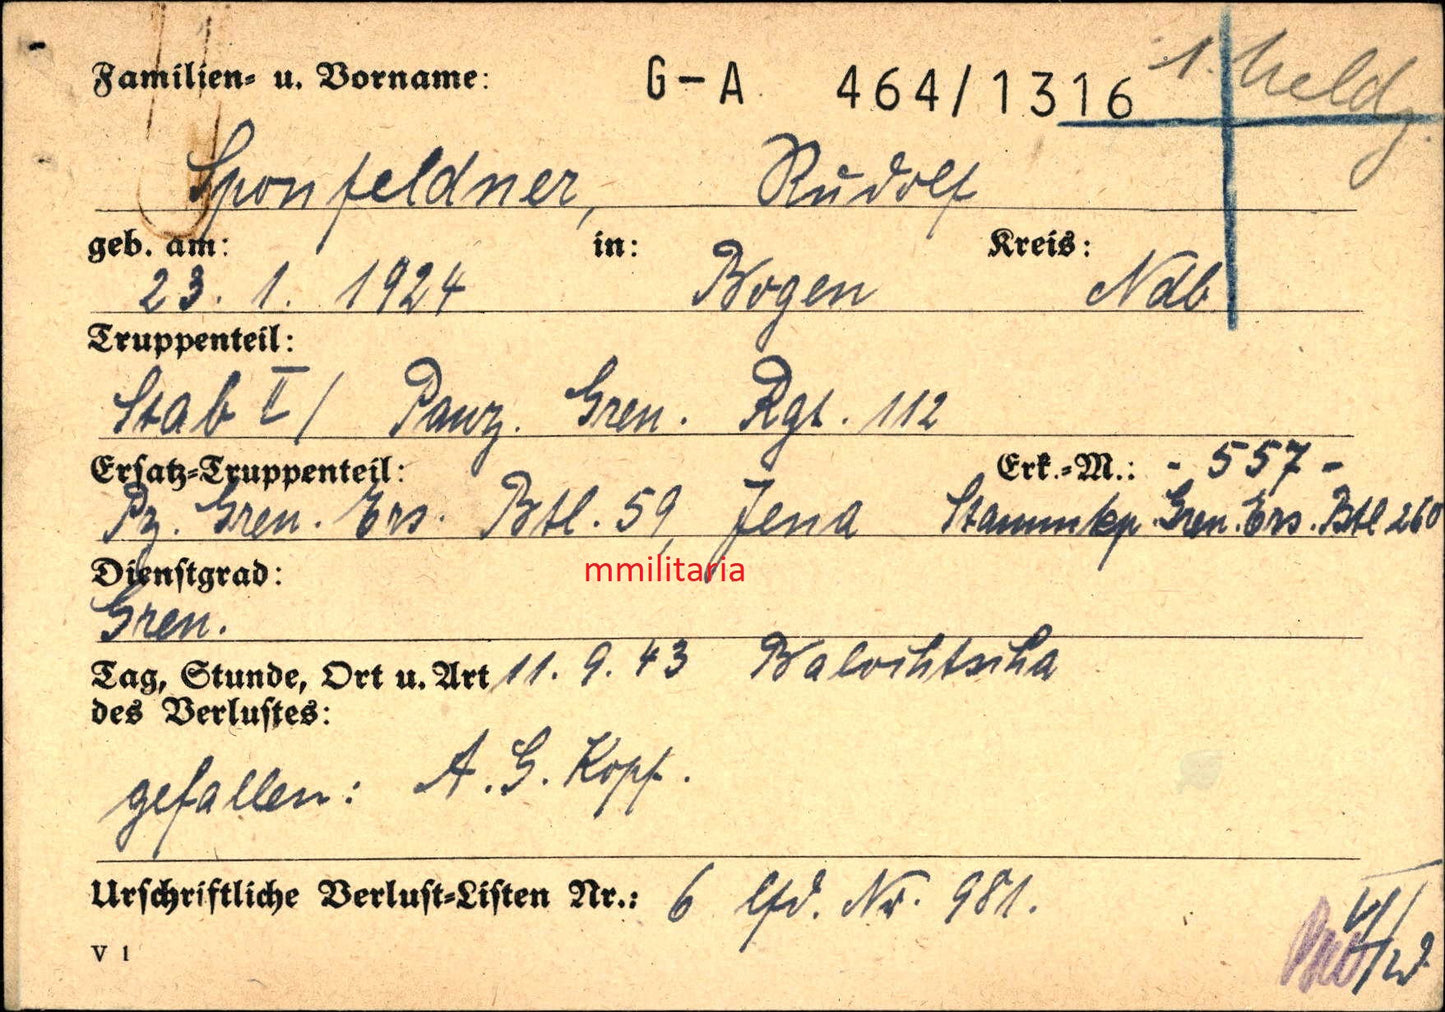 Familien- u. Vorname: G-A 464/1316 1. Meldg.
Sponfeldner, Rudolf
geb. am: in: Kreis:
23. 1. 1924 Bogen Ndb
Truppenteil:
Stab II/ Panz. Gren. Rgt. 112
Ersatz-Truppenteil: Erk.-M.: - 557 -
Pz. Gren. Ers. Btl. 59, Jena Stammkp. Gren. Ers. Btl 260
mmilitaria
Dienstgrad:
Gren.
Tag, Stunde, Ort u. Art 11. 9. 43
des Verlustes:
gefallen: A. G. Kopf.
Urschriftliche Verlust-Listen Nr.: 6 lfd. Nr. 981.
V 1